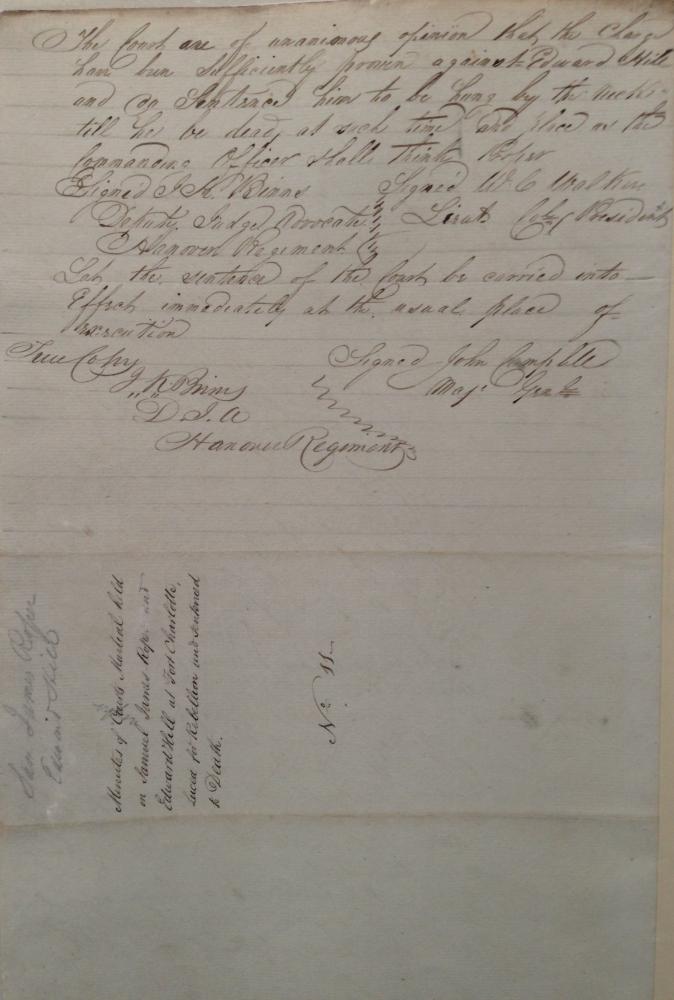 The Court are of unanimous opinion that the Charge
have been sufficiently proven against Edward Hill
and do Sentence him to be hung by the neck
till he be dead at such time and place as the
Commanding Officer shall think Proper
Signed J. K. Binns Signed W C Walker
Deputy Judge Advocate Lieut Coly President
Hanover Regiment
Let the sentence of the Court be carried into
Effect immediately at the usual place of
execution
True Copy Signed John Campbell
J K Binns Majr Genl
D. J. A
Hanover Regiment
Sam James Roper
Edward Hill
Minutes of Court Martial held
on Samuel James Roper and
Edward Hill at Fort Charlotte,
Lucea for Rebellion and sentenced
to Death.
No. 11